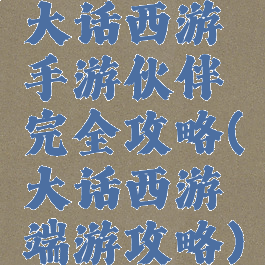 大话西游
手游伙伴
完全攻略(
大话西游
端游攻略)